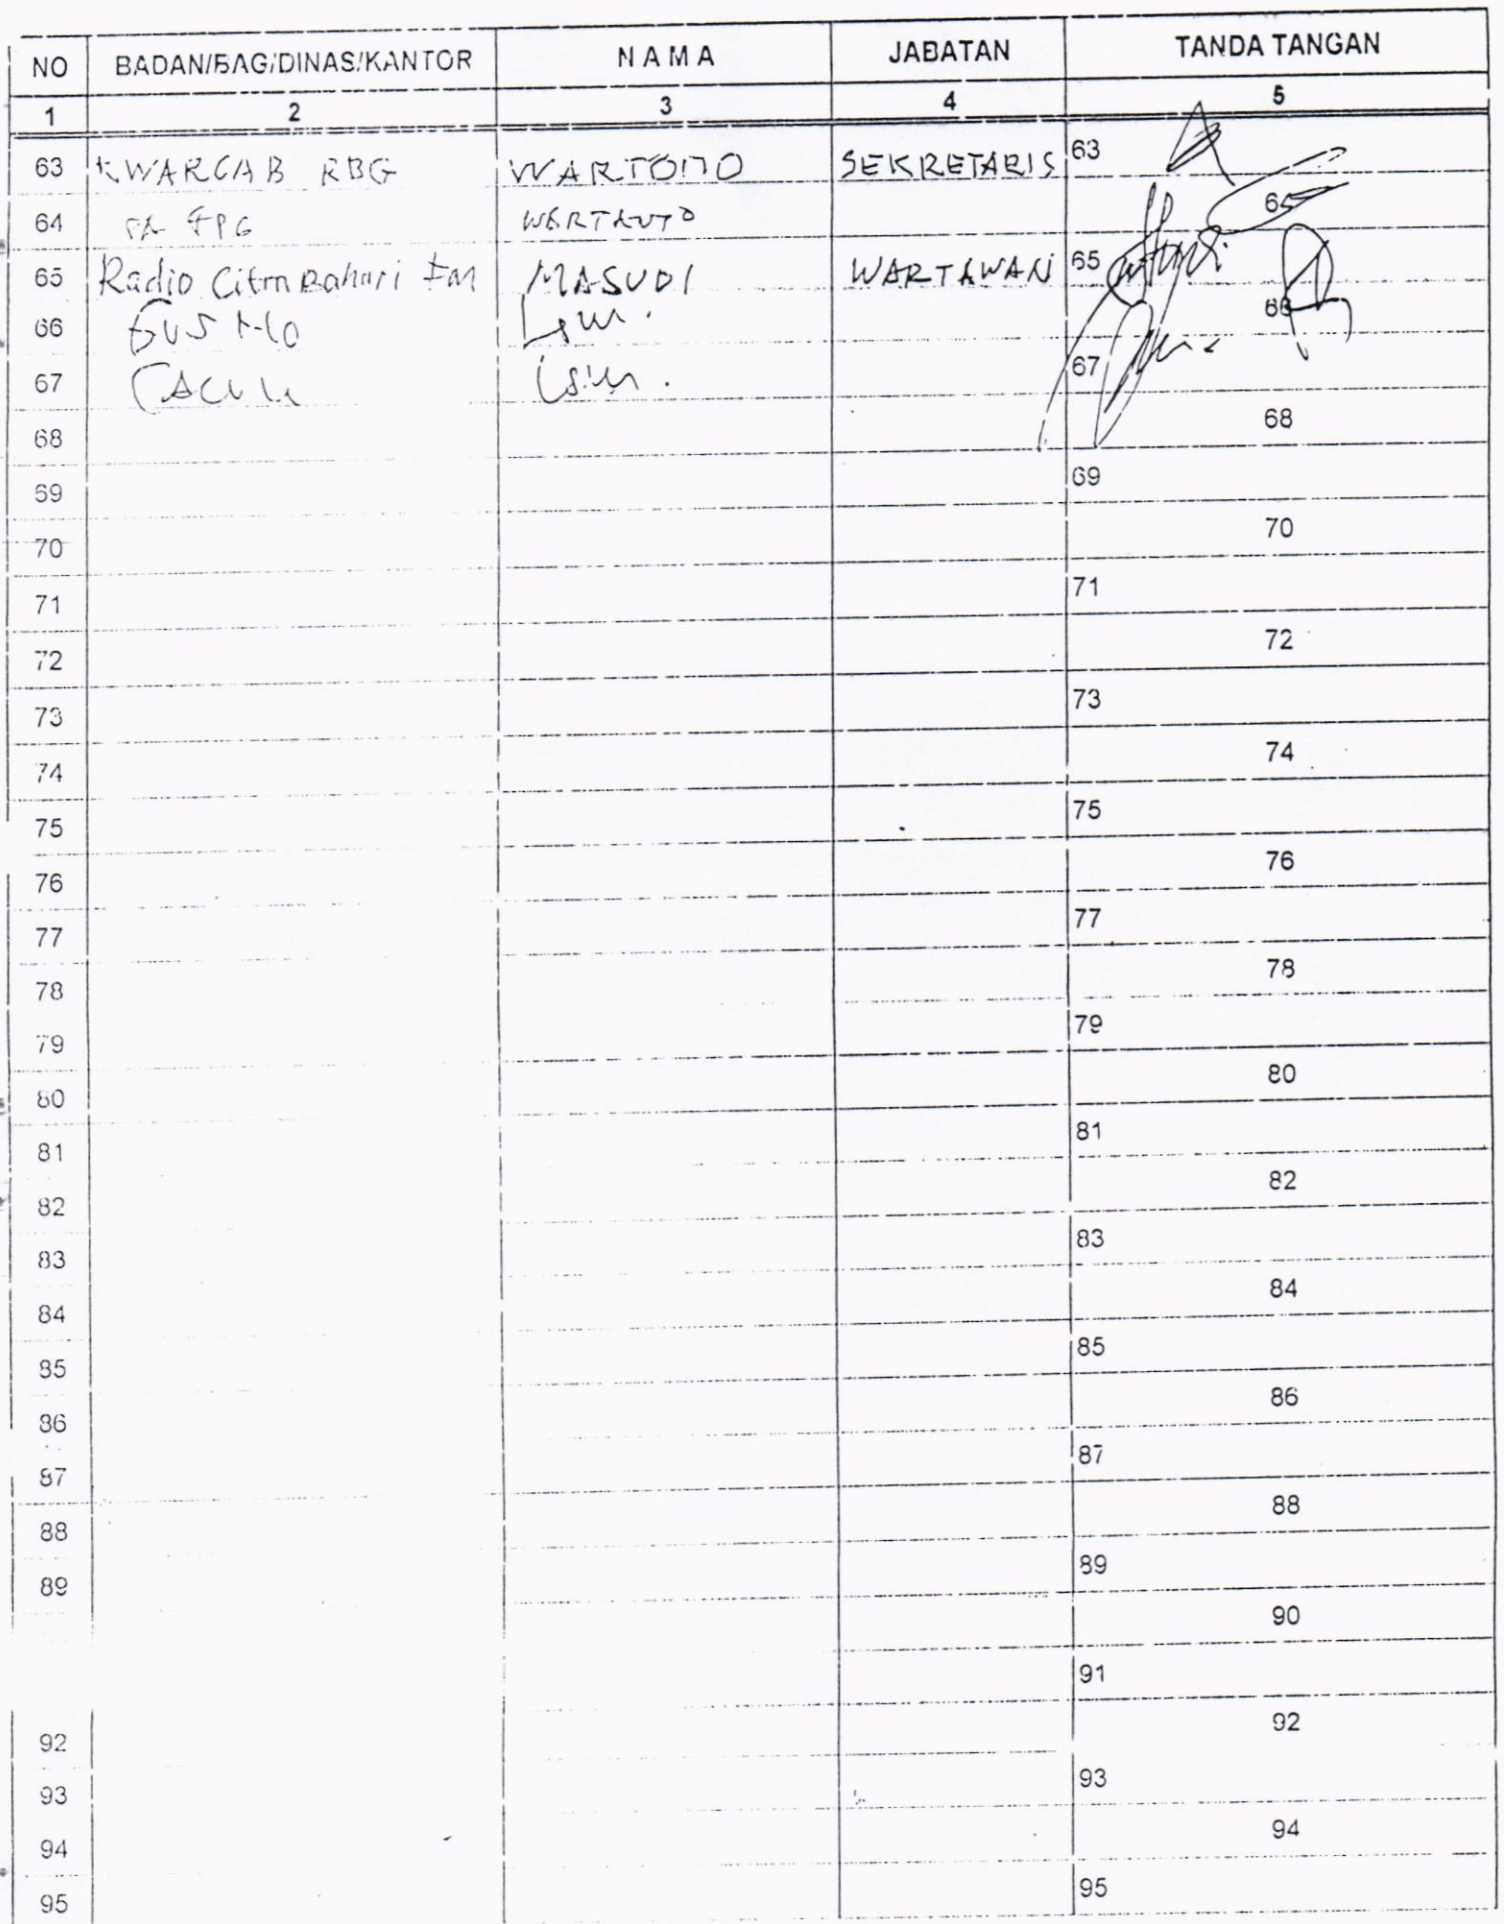 NO BADAN/BAG/DINAS/KANTOR N A M A JABATAN TANDA TANGAN
1 2 3 4 5
63 KWARCAB RBG WARTONO SEKRETARIS 63
64
65 Radio Citra Bahari FM MASUDI WARTAWAN 65
66 66
67 67
68 68
69 69
70 70
71 71
72 72
73 73
74 74
75 75
76 76
77 77
78 78
79 79
80 80
81 81
82 82
83 83
84 84
85 85
86 86
87 87
88 88
89 89
90
91
92 92
93 93
94 94
95 95